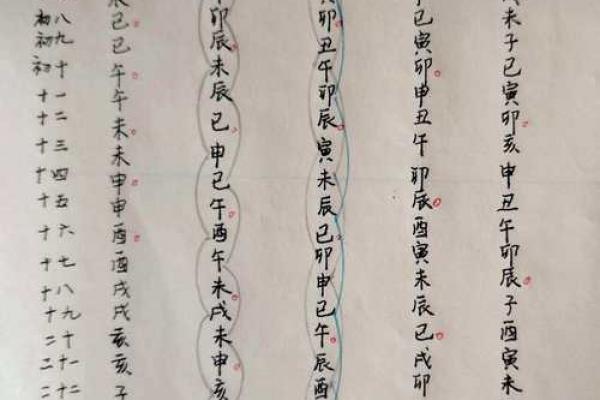 初八
初九
初十
十一
十二
十三
十四
十五
十六
十七
十八
十九
二十
二十一
二十二
巳巳午午未未申申酉酉戌戌亥亥子
卯辰未辰巳申巳午酉午未戌未申亥
卯丑午卯辰寅未辰巳卯申巳午辰酉
巳寅卯申丑午卯辰酉寅未辰巳戌卯
未子巳寅卯亥申丑午卯辰子酉寅未